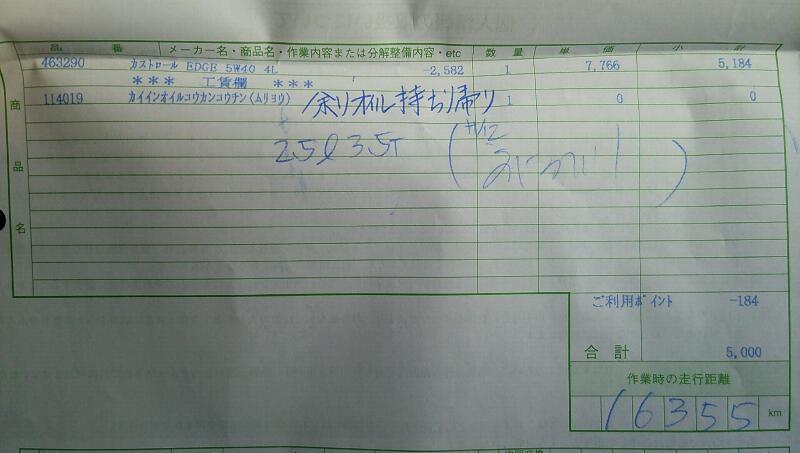 品 番 メーカー名・商品名・作業内容または分解整備内容・etc 数 量 単 価 小 計
463290 カストロール EDGE 5W40 4L -2,582 1 7,766 5,184
*** 工賃欄 ***
114019 カイインオイルコウカンコウチン(ムリョウ) 余りオイル持ち帰り 1 0 0
2.5ℓ 3.5T
商
品
名
ご利用ポイント -184
合 計 5,000
作業時の走行距離
16355 km